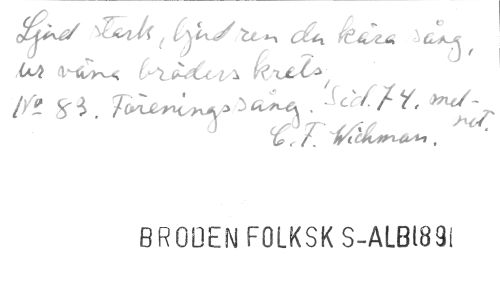 Ljud stark, ljud ren du kära sång,
ur våra bröders krets,
No 83. Föreningssång. Sid. 74. mel-
not.
C. F. Wichman.
BRODEN FOLKSK S-ALB1891